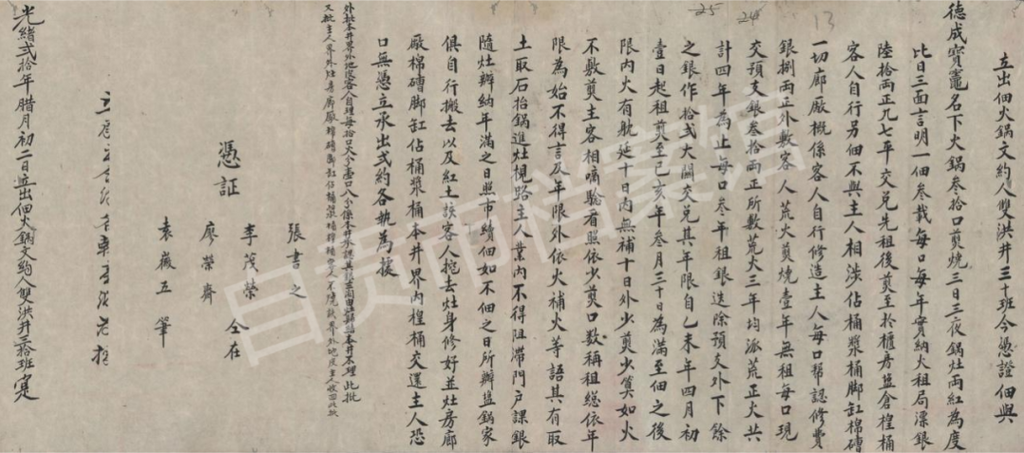 立出佃火鍋文約人雙洪井三十班今憑證佃與
德成寶竈名下火鍋叁拾口煎燒三日三夜鍋灶兩紅為度
比日三面言明一佃叁載每口每年實納火租局漂銀
陸拾兩正九七平交兌先租後煎至於櫃房盐倉楻桶
客人自行另佃不與主人相涉佔桶漿桶脚缸棉磚
一切廊厰概係客人自行修造主人每口帮認修費
銀捌兩正外敷客人荒火煎燒壹年無租每口現
交預支銀叁拾兩正所敷荒火三年均派荒正火共
計四年為止每口叁年租銀迭除預支外下餘
之銀作拾弍大關交兌其年限自乙未年四月初
壹日起租煎至己亥年叁月三十日為滿至佃之後
限內火有躭延十日內無補十日外少煎少算如火
不敷煎主客相嘀騐看照依少煎口數稱租総依年
限為始不得言及年限外依火補火等語其有取
土取石抬鍋進灶梘路主人業內不得阻滯門戶課銀
隨灶辦納年滿之日照市續佃如不佃之日所辦盐鍋家
俱自行搬去以及紅土鉄客人挖去灶身修好並灶房廊
厰棉磚脚缸佔桶漿桶本井界內楻桶交還主人恐
口無憑立承出弍約各執為據
憑証
張書之
李茂榮
廖榮齊
袁薇五 筆
仝在
光緒弍拾年腊月初二日立出佃火鍋文約人雙洪井三拾班 定
13
24
25
自贡市档案馆